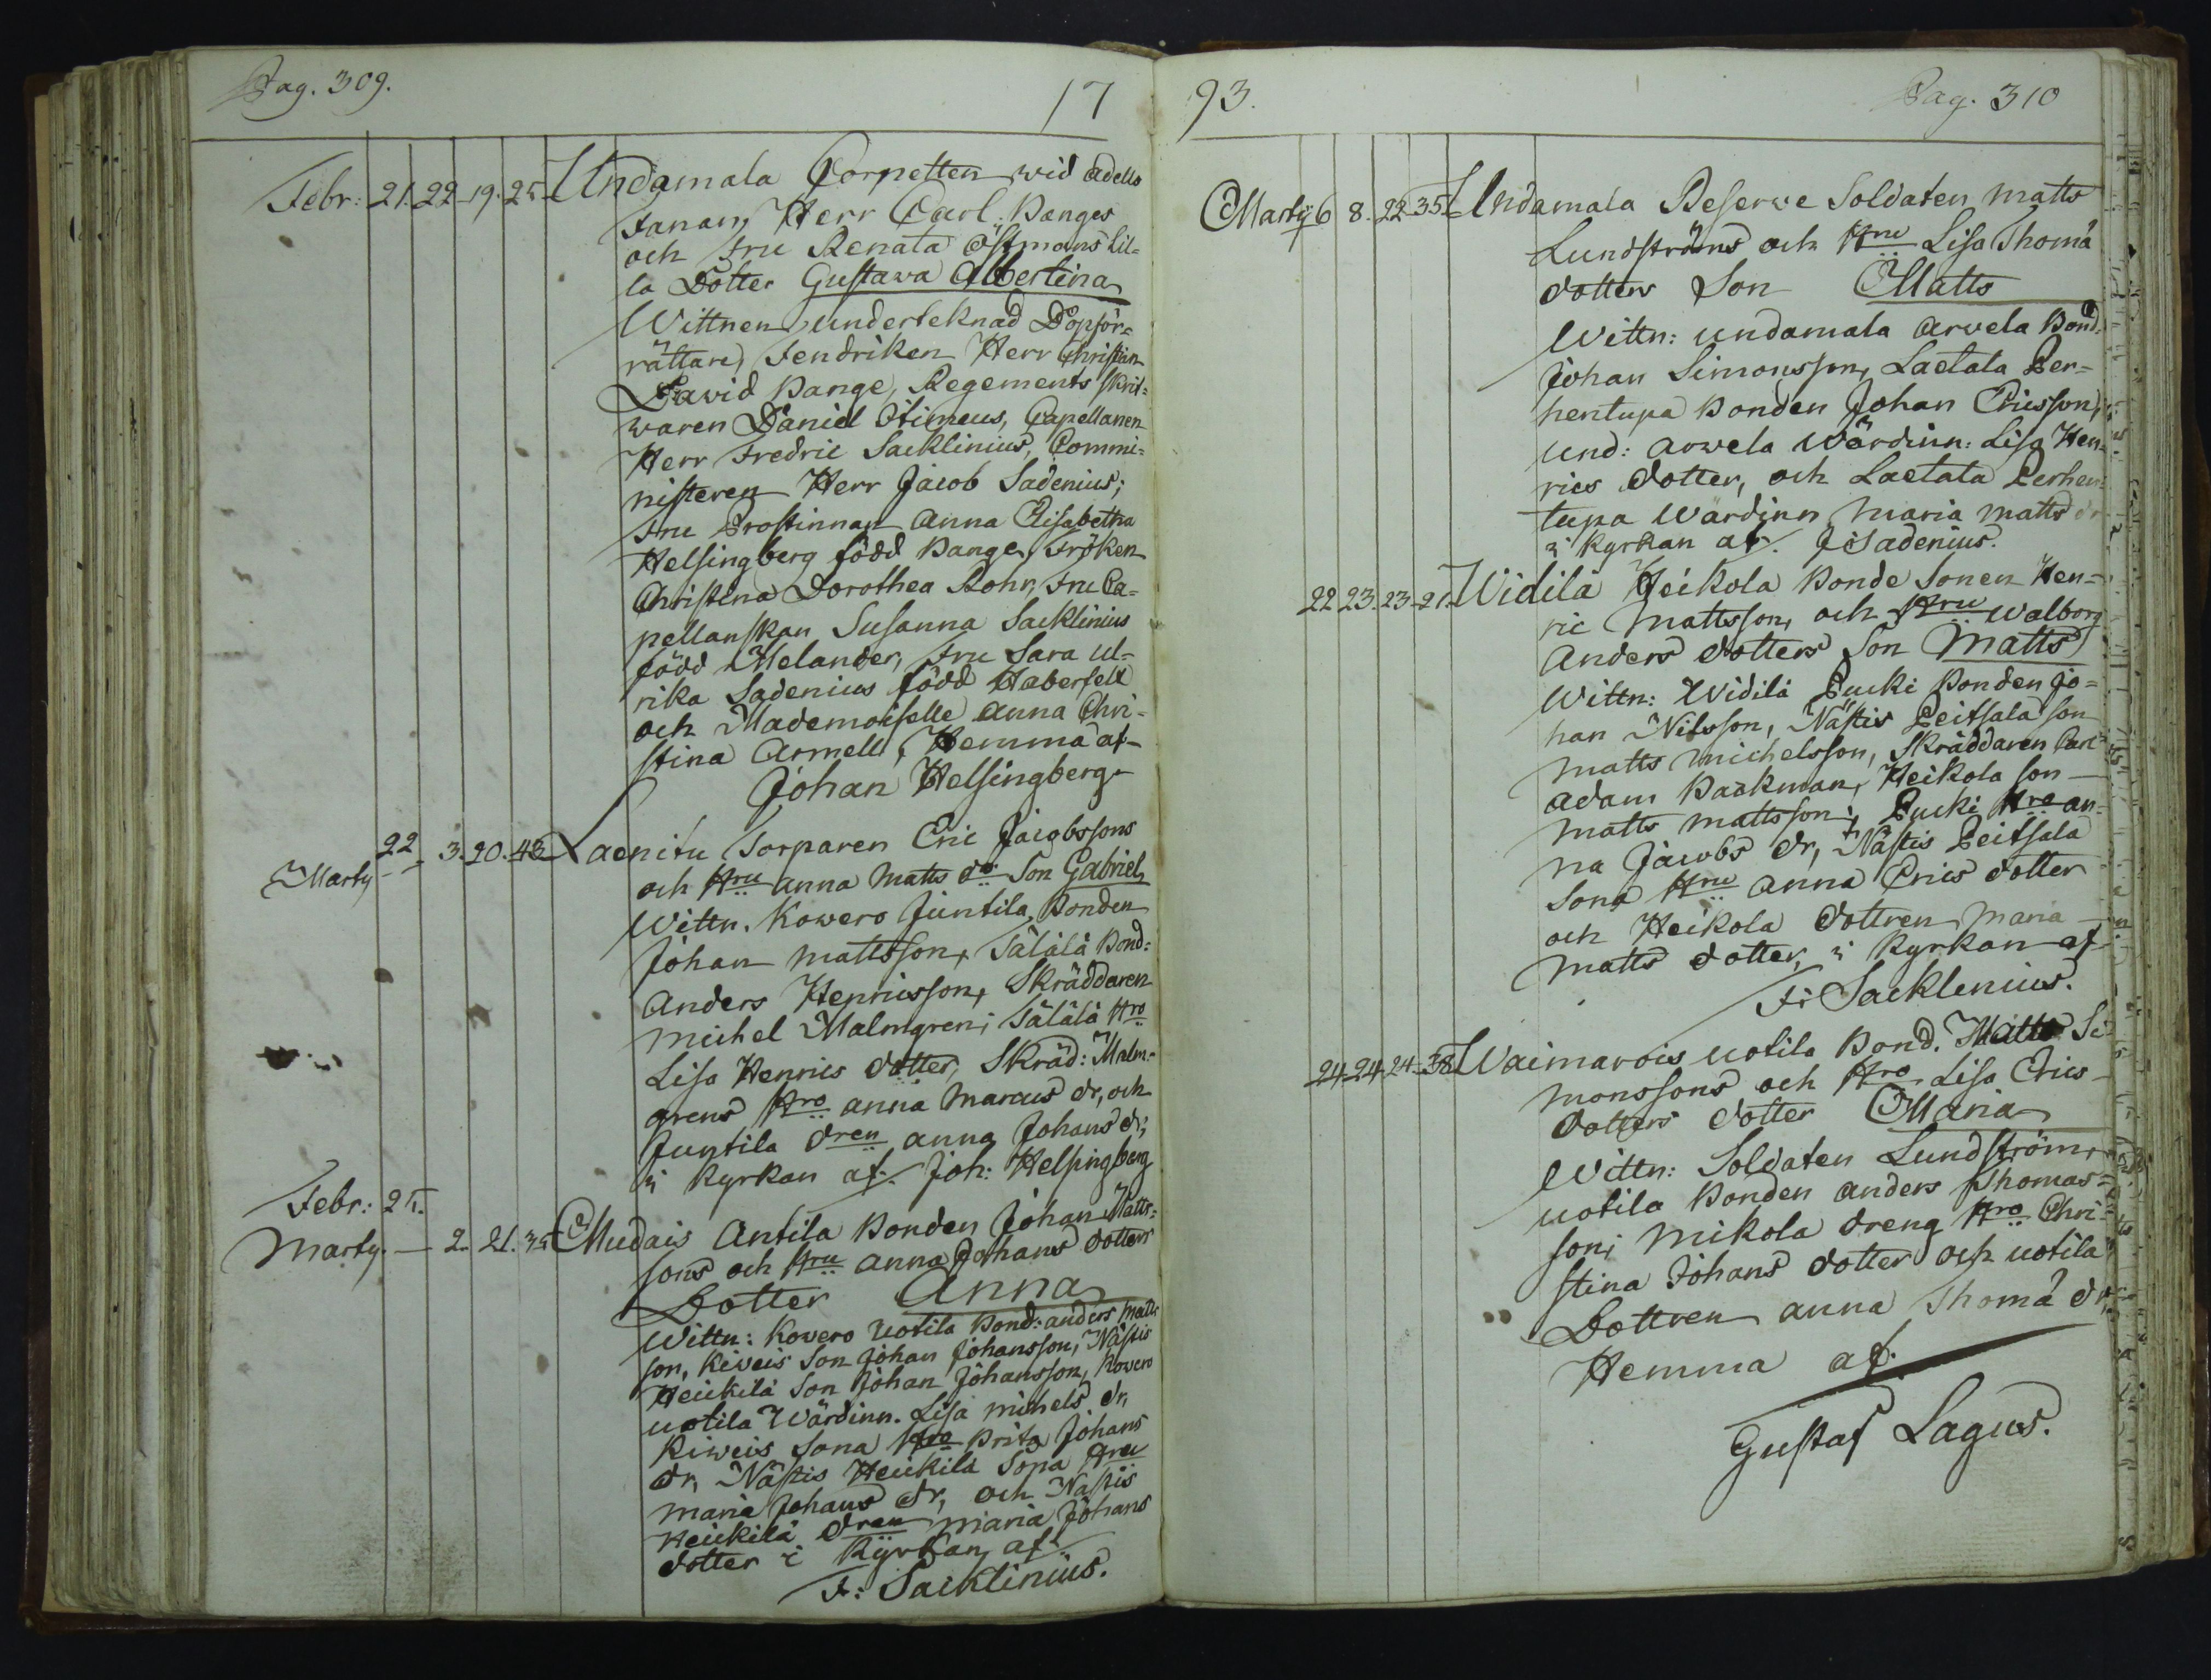 Pag. 309.
17
Febr: 21. 22 19. 25 Undamala Cornetten wid Adells
Fanan, Herr Carl Banges
och Fru Renata Östmans Lil=
la Dotter Gustava Albertina
Wittnen, undertecknad Dopför=
rättare, Fendriken Herr Christian
David Bange, Regements skrif=
waren Daniel Stimeus, Capellanen
Herr Fredric Sacklinius, Commi=
nisteren Herr Jacob Sadenius;
Fru Prostinnan Anna Elisabetha
Helsingberg född Bange, Fröken
Christina Dorothea Rohr, Fru Ca=
pellanskan Susanna Sacklinius
född Melander, Fru Sara Ul=
rika Sadenius född Haberfelt
och Mademoiselle Anna Chri=
stina Armell, Hemma af
Johan Helsingberg
Marty 22 3. 20. 43 Laenitu Torparen Eric Jacobssons
och Hru Anna Matts dr Son Gabriel
Wittn. Kowero Juntila Bonden
Johan Mattsson, Tälälä Bond:
Anders Henricsson, Skräddaren
Michel Malmgren; Tälälä Hro
Lisa Henrics dotter, Skräd: Malm=
grens Hro Anna Marcus dr, och
Juntila dren Anna Johans dr;
i kyrkan af. Joh: Helsingberg
Febr: 25.
Marty. — 2. 21. 35 Mudais Antila Bonden Johan Matts=
sons och Hru Anna Johans dotters
Dotter Anna
Wittn: Kovero Uotila Bond: Anders Matts
son, Kiveis Son Johan Johansson, Nästis
Heickilä Son Johan Johansson, Kovero
Uotila Wärdinn. Lisa Michels dr,
Kiweis Sona Hro Brita Johans
dr, Nästis Heickilä Sona Hru
Maria Johans dr, och Nästis
Heickilä dren Maria Johans
dotter i Kyrkan af
F: Sacklinius.
93.
Pag. 310
Marty 6 8. 22 35 Undamala Reserve Soldaten Matts
Lundströms och Hru Lisa Thomä
dotters Son Matts
Wittn: Undamala Arvela Bond.
Johan Simonsson, Laetala Per=
hentupa Bonden Johan Ericsson,
Und: Arwela Wärdinn: Lisa Hen=
rics dotter, och Laetala Perhen
tupa Wärdinn Maria Matts dr
i kyrkan af. J Sadenius.
22 23. 23. 21. Widilä Heikola Bonde Sonen Hen=
ric Mattsson, och Hru Walborg
Anders dotters Son Matts
Wittn: Widilä Pucki Bonden Jo=
han Nilsson, Nästis Peitsala son
Matts Michelsson, Skräddaren Carl
Adam Backman, Heikola son
Matts Mattsson; Pucki Hro An=
na Jacobs dr, Nästis Peitsala
Sona Hru Anna Erics dotter
och Heikola dottren Maria
Matts dotter, i Kyrkan af
Fr Sacklenius.
24 24 24 38 Waimarois Uotila Bond. Matts Si=
monssons och Hro Lisa Erics
dotters dotter Maria
Wittn: Soldaten Lundström,
Uotila Bonden Anders Thomas=
son; Mikola dreng Hro Chri=
stina Johans dotter och Uotila
Dottren Anna Thomä dr,
Hemma af
Gustaf Lagus.